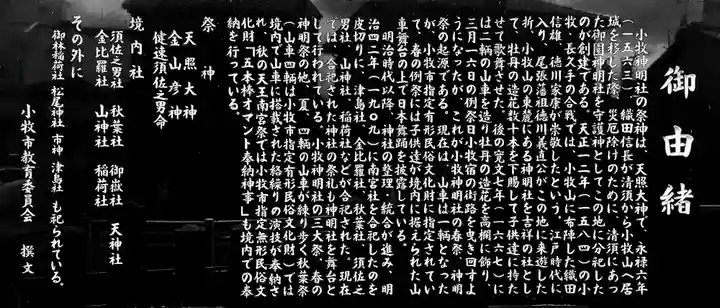 御由緒
小牧神明社の祭神は、天照大神で、永禄六年
(一五六三)織田信長が清須から小牧山へ居
城を移した際、災厄除けのために、清須にあっ
た御園神明社を守護神としてこの地に分祀した
のが創建である。天正一二年(一五八四)の小
牧・長久手の合戦では、小牧山に布陣した織田
信雄、徳川家康が崇敬したという。江戸時代に
入り、尾張藩祖徳川義直公がこの地に来遊した
折、小牧山の東麓にある神明社を吉祥の社とし
て、牡丹の造花数十本を下賜して子供達に持た
せて歌舞させた。後の寛文七年(一六六七)に
は二輌の山車を造り牡丹の造花を高欄に飾り、
三月一六日の例祭日小牧宿の街路を曳き回すよ
うになったが、これが小牧神明社の春祭、神明
祭の起源である。現在は、山車は四輌となった
が、小牧市指定有形民俗文化財に指定されてい
て、春の例祭には子供達が境内に据えられた山
車舞台の上で日本舞踊を披露している。
明治時代以降、神社の整理・統合も進み、明
治四二年(一九〇九)に南宮社を合祀したのを
皮切りに、津島社、金比羅社、秋葉社、須佐之
男社、山神社、稲荷社などが合祀された。現在
では、合祀された神社の祭礼も神明社を舞台と
して行われている。小牧神明社の三大祭、春の
神明祭の他、夏、四輌の山車が練り歩く秋葉祭
(山車四輌は小牧市指定有形民俗文化財)では
境内で山車に搭載された絡繰りの演技が奉納さ
れ、秋の天王南宮祭では小牧市指定無形民俗文
化財「五本棒オマント奉納神事」も境内での奉
納を行っている。
祭神
天照大神
金山彦神
健速須佐之男命
境内社
須佐之男社 秋葉社 御嶽社 天神社
金比羅社 山神社 稲荷社
その外に
御林稲荷社 松尾神社 市神 津島社 も祀られている。
小牧市教育委員会 撰文